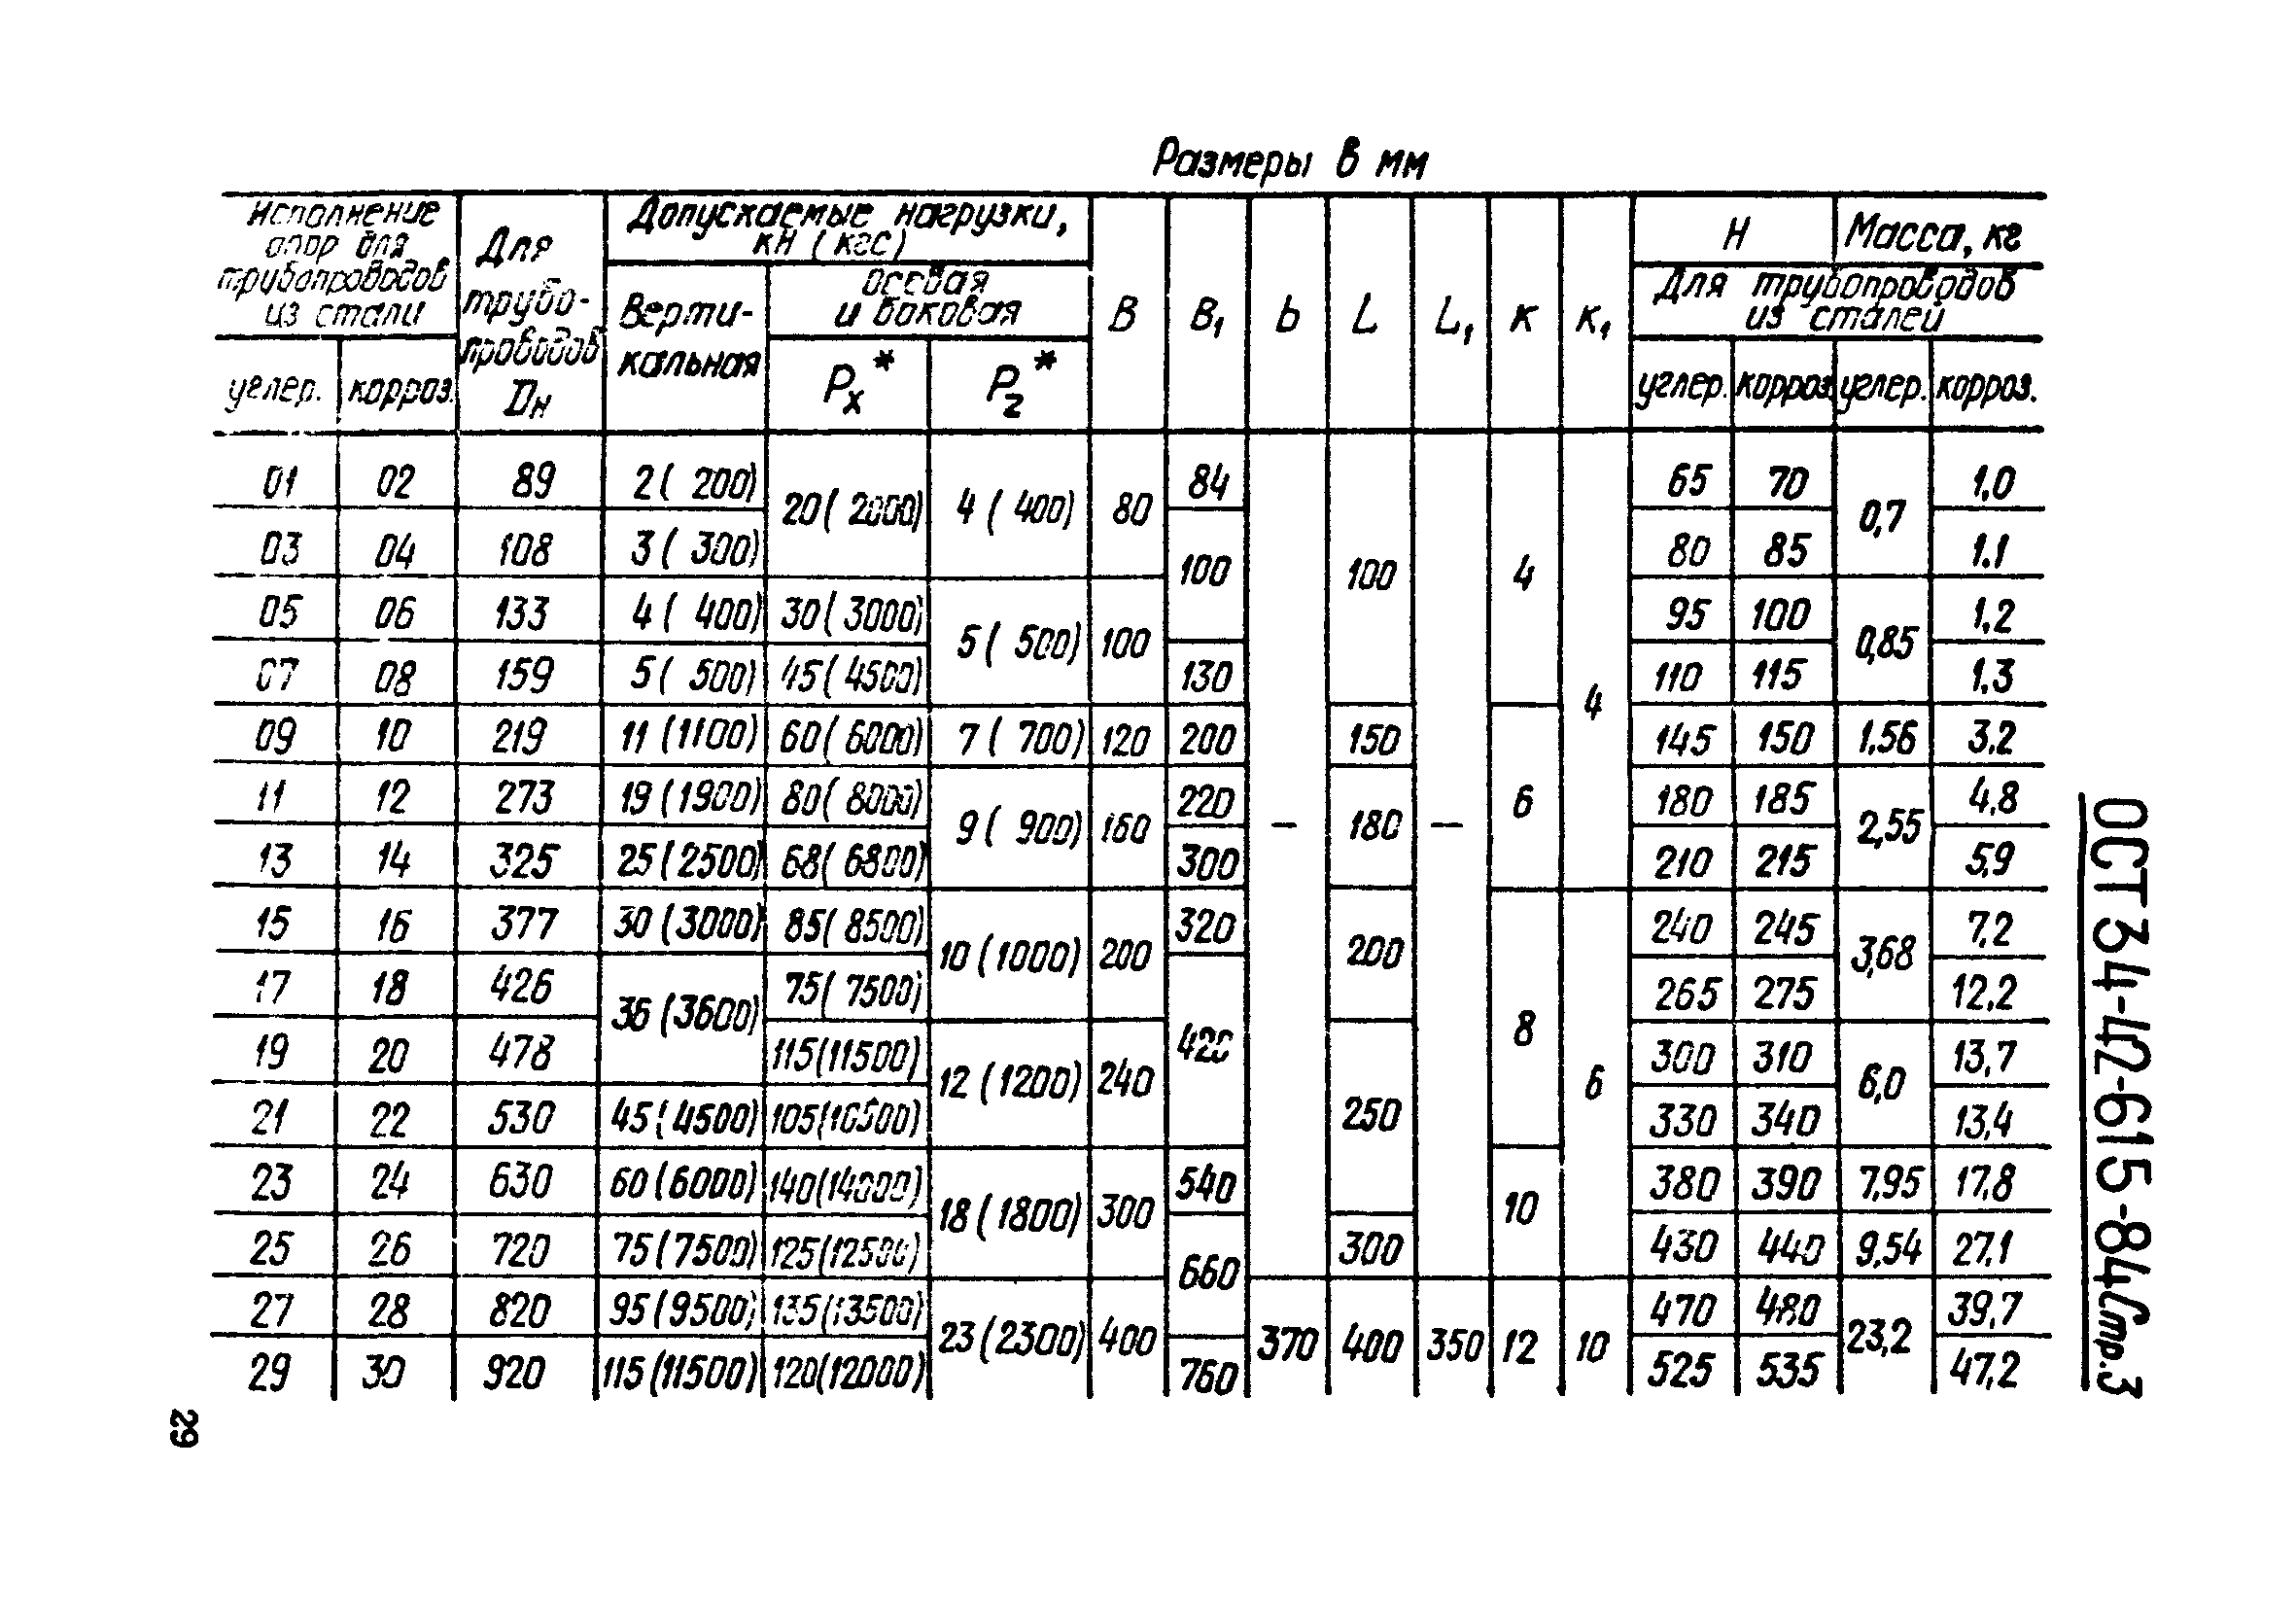 Размеры в мм
Исполнение опор для трубопроводов из стали | Для трубо-проводов Dн | Допускаемые нагрузки, кН (кгс) | B | B₁ | b | L | L₁ | к | к₁ | H | Масса, кг
Верти-кальная | осевая и боковая | Для трубопроводов из сталей
углер. | корроз. | Pх* | Pz* | углер. | корроз. | углер. | корроз.
01 | 02 | 89 | 2 (200) | 20 (2000) | 4 (400) | 80 | 84 | – | 100 | – | 4 | 4 | 65 | 70 | 0,7 | 1,0
03 | 04 | 108 | 3 (300) | 100 | 80 | 85 | 1,1
05 | 06 | 133 | 4 (400) | 30 (3000) | 5 (500) | 100 | 95 | 100 | 0,85 | 1,2
07 | 08 | 159 | 5 (500) | 45 (4500) | 130 | 110 | 115 | 1,3
09 | 10 | 219 | 11 (1100) | 60 (6000) | 7 (700) | 120 | 200 | 150 | 6 | 145 | 150 | 1,56 | 3,2
11 | 12 | 273 | 19 (1900) | 80 (8000) | 9 (900) | 160 | 220 | 180 | 180 | 185 | 2,55 | 4,8
13 | 14 | 325 | 25 (2500) | 68 (6800) | 300 | 210 | 215 | 5,9
15 | 16 | 377 | 30 (3000) | 85 (8500) | 10 (1000) | 200 | 320 | 200 | 8 | 6 | 240 | 245 | 3,68 | 7,2
17 | 18 | 426 | 36 (3600) | 75 (7500) | 420 | 265 | 275 | 12,2
19 | 20 | 478 | 115 (11500) | 12 (1200) | 240 | 250 | 300 | 310 | 6,0 | 13,7
21 | 22 | 530 | 45 (4500) | 105 (10500) | 330 | 340 | 13,4
23 | 24 | 630 | 60 (6000) | 140 (14000) | 18 (1800) | 300 | 540 | 10 | 380 | 390 | 7,95 | 17,8
25 | 26 | 720 | 75 (7500) | 125 (12500) | 660 | 300 | 430 | 440 | 9,54 | 27,1
27 | 28 | 820 | 95 (9500) | 135 (13500) | 23 (2300) | 400 | 370 | 400 | 350 | 12 | 10 | 470 | 480 | 23,2 | 39,7
29 | 30 | 920 | 115 (11500) | 120 (12000) | 760 | 525 | 535 | 47,2
ОСТ 34-42-615-84 Стр. 3
29